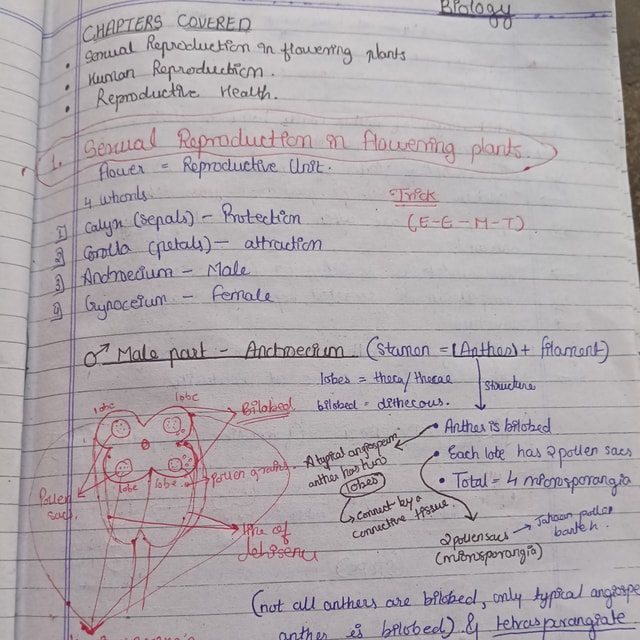 Biology
CHAPTERS COVERED
• Sexual Reproduction in flowering plants
• Human Reproduction.
• Reproductive Health.
1. Sexual Reproduction in flowering plants.
flower = Reproductive Unit.
4 whorls
Trick
(E-E-M-T)
1] Calyx (sepals) - Protection
2] Corolla (petals) - attraction
3] Androecium - Male
4] Gynoceium - Female
♂ Male part - Androecium. (Stamen = (Anther) + filament)
lobes = theca/thecae
bilobed = dithecous.
structure
• Anther is bilobed
• Each lobe has 2 pollen sacs
• Total = 4 microsporangia
A typical angiosperm
anther has two
lobes
Connect by a
connective tissue.
2 pollen sacs → Jahaan pollen
bante h.
(microsporangia)
lobe
lobe
Bilobed
Pollen grains
lobe
lobe
Pollen
sacs
line of
(not all anthers are bilobed, only typical
anther is bilobed) & tetrasporangiate